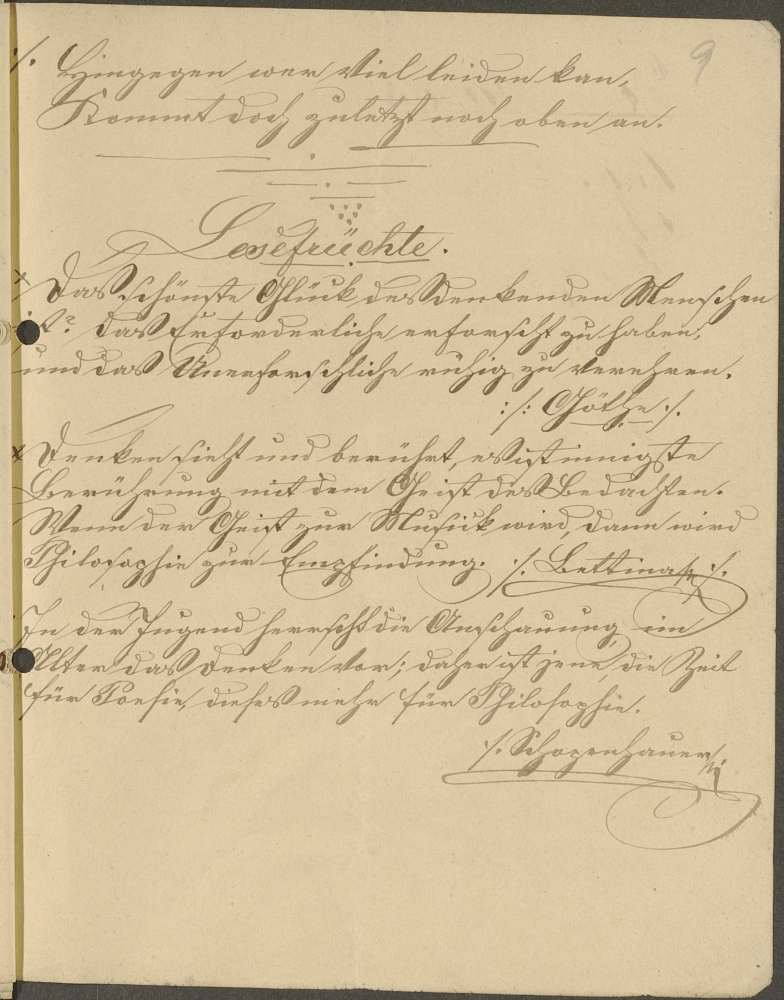 9
./. Hingegen wer Viel leiden kan,
Kommt doch zuletzt noch oben an.
Lesefrüchte.
x Das schönste Glück des denkenden Menschen
ist? das Erforderliche erforscht zu haben,
und das Unerforschliche ruhig zu verehren.
:/: Göthe :/.
x Denken sieht und berührt, es ist innigste
Berührung mit dem Geist des Bedachten.
Wenn der Geist zur Musik wird, dann wird
Philosophie zur Empfindung. :/. Bettina :/.
In der Jugend herrscht die Anschauung, im
Alter das Denken vor; daher ist jene, die Zeit
für Poesie, dieses mehr für Philosophie.
:/. Schopenhauer